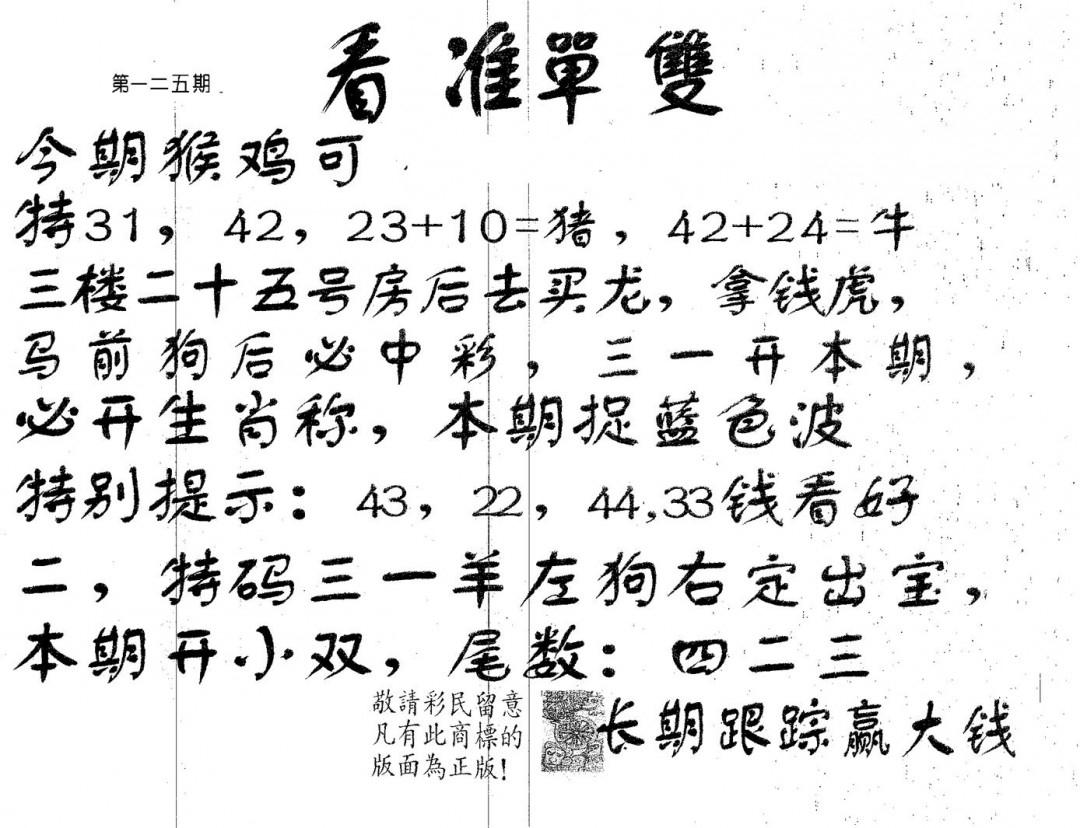 第一二五期
看准單雙
今期猴鸡可
特31，42，23+10=猪，42+24=牛
三楼二十五号房后去买龙，拿钱虎，
马前狗后必中彩，三一开本期，
必开生肖称，本期捉蓝色波
特别提示：43，22，44,33钱看好
二，特码三一羊左狗右定出宝，
本期开小双，尾数：四二三
敬請彩民留意
凡有此商標的
版面為正版！
长期跟踪赢大钱